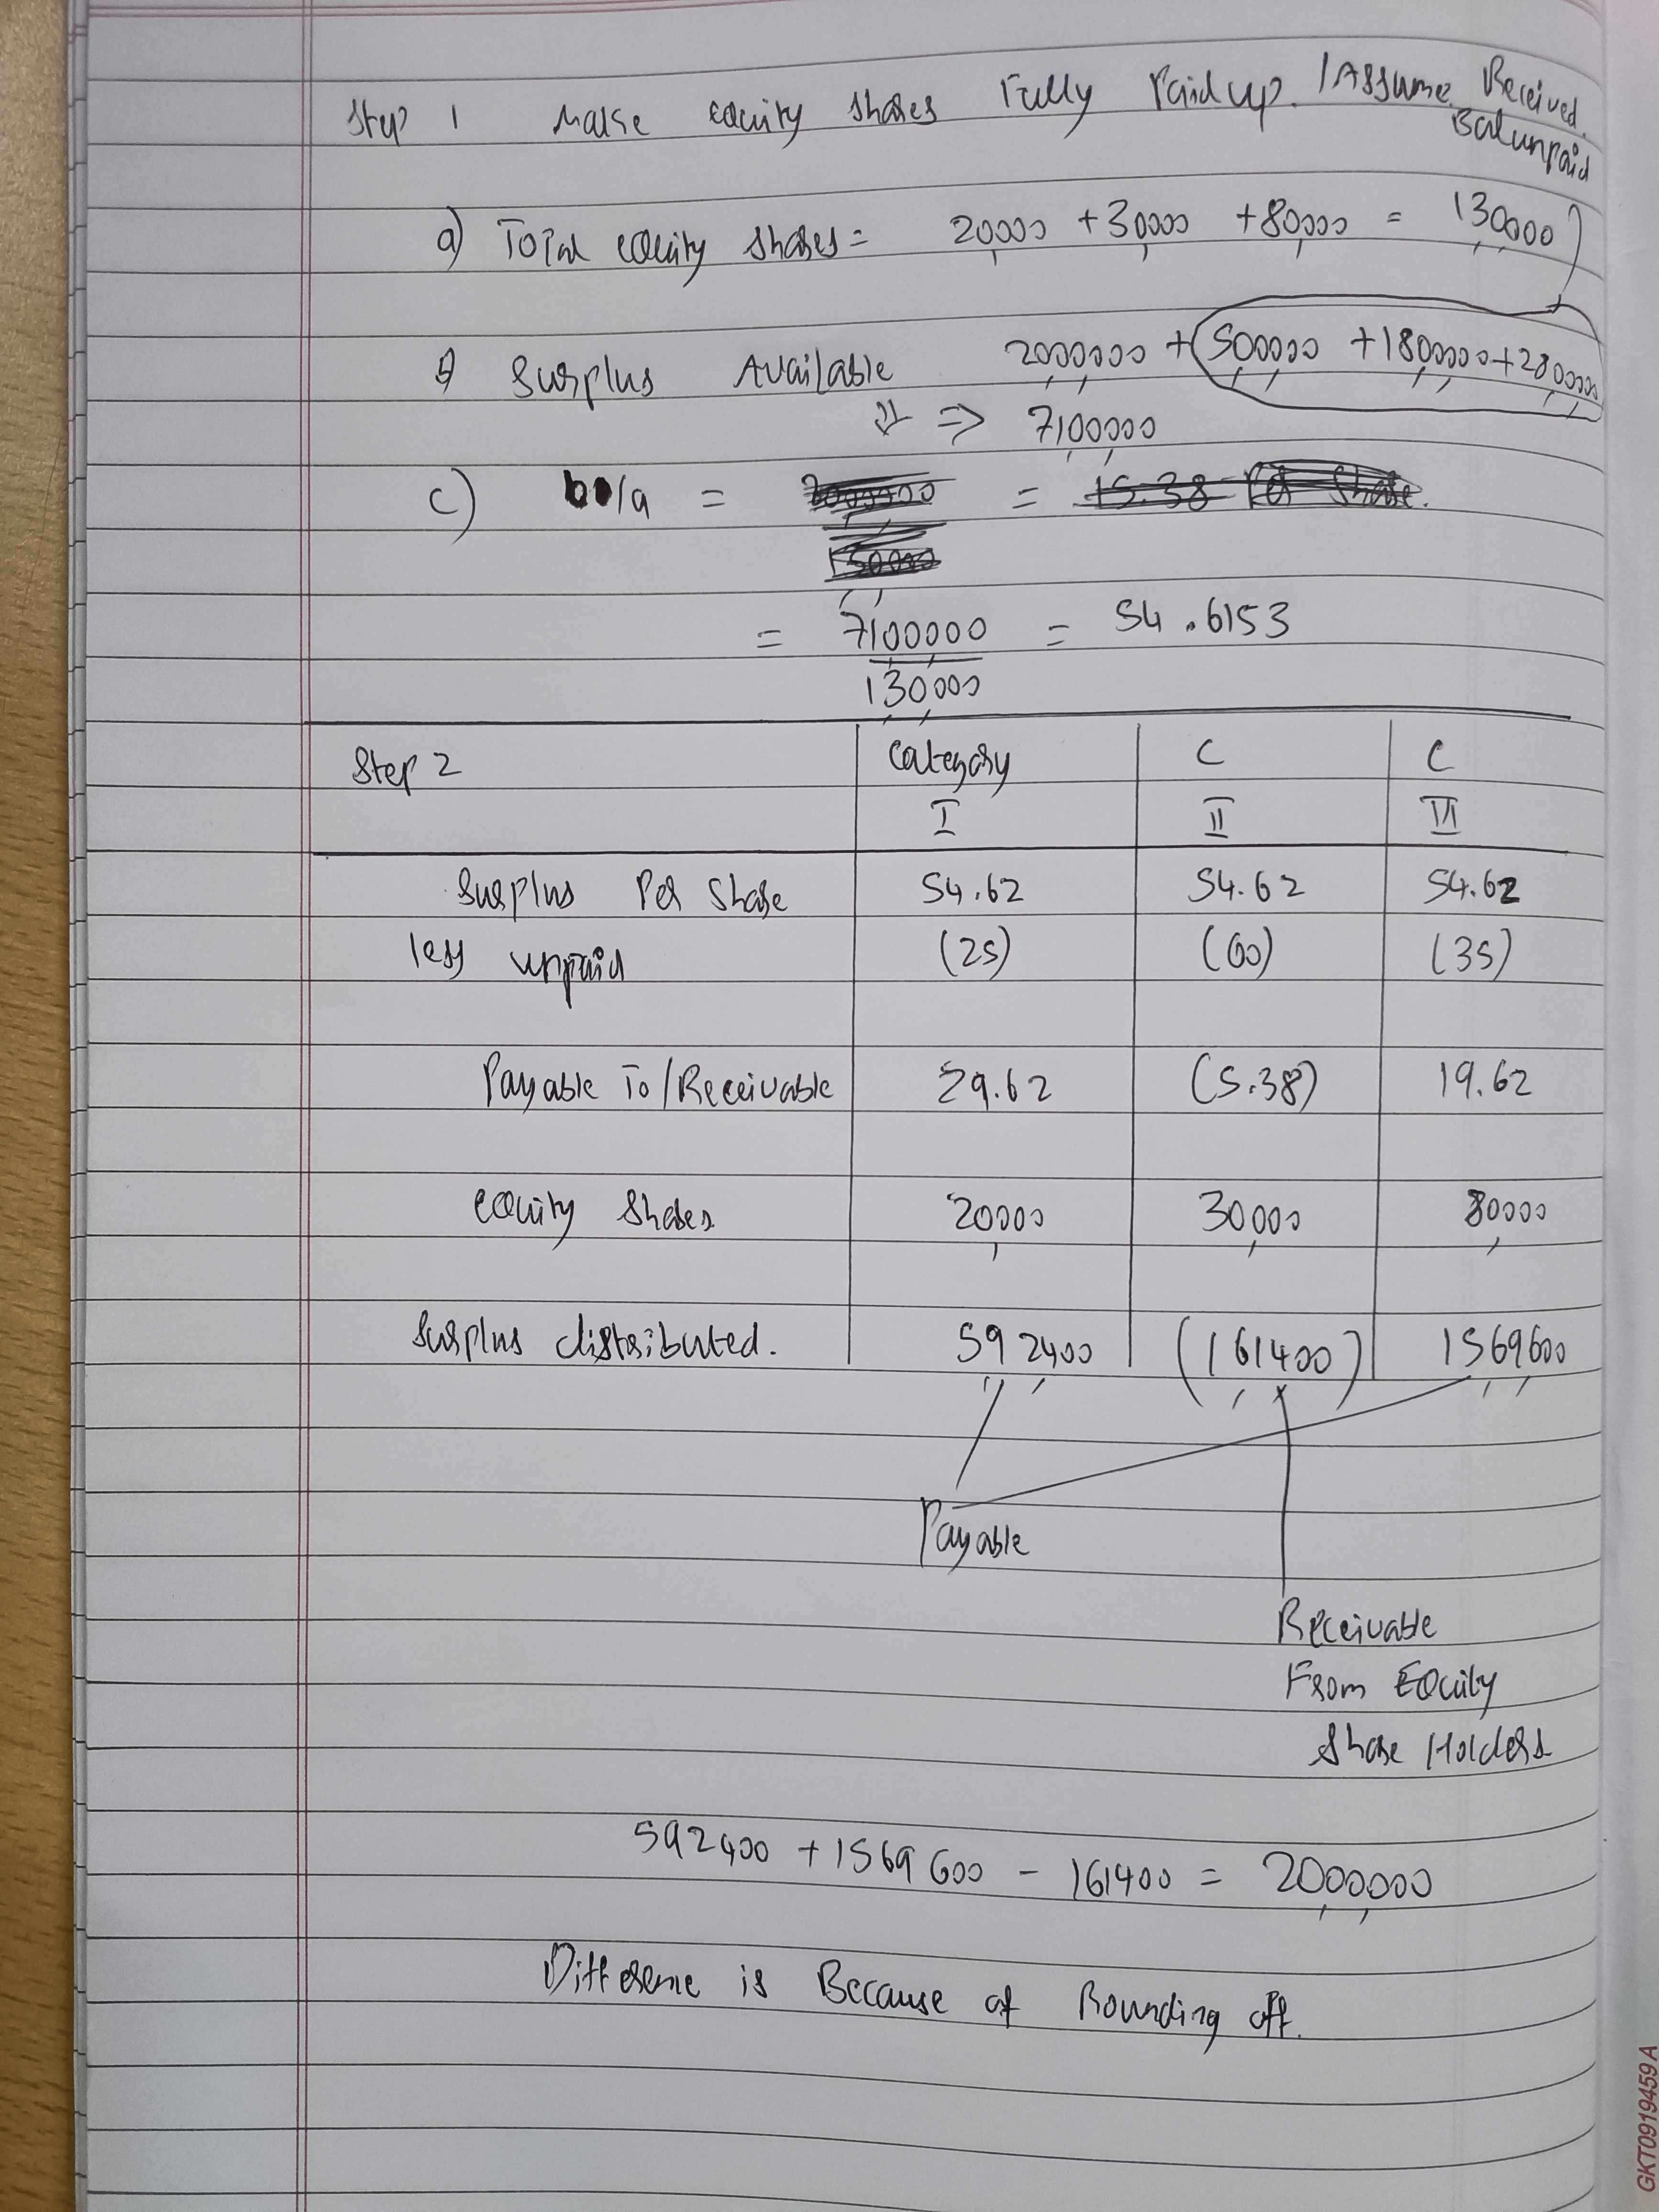 Step 1 Make equity shares Fully Paid up. / Assume Received.
Bal unpaid
a) Total equity shares = 20000 + 30000 + 80000 = 130000
b) Surplus Available 2000000 + (500000 + 1800000 + 2800000
⇓ ⇒ 7100000
c) b/a = =
= 7100000 = 54.6153
130000
Step 2 Category C C
I II III
Surplus Per Share 54.62 54.62 54.62
less unpaid (25) (60) (35)
Payable To/Receivable 29.62 (5.38) 19.62
equity Shares 20000 30000 80000
Surplus distributed. 592400 (161400) 1569600
Payable
Receivable
From Equity
Share Holders
592400 + 1569600 - 161400 = 2000000
Difference is Because of Rounding off.
GKT0919459A